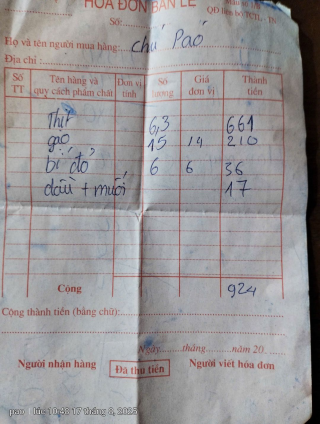 HÓA ĐƠN BÁN LẺ
Số:
QĐ liên bộ TCTL - TN
Họ và tên người mua hàng: chú Paó
Địa chỉ:
Số TT Tên hàng và quy cách phẩm chất Đơn vị tính Số lượng Giá đơn vị Thành tiền
Thịt 6,3 661
gạo 15 14 210
bí đỏ 6 6 36
dầu + muối 17
Cộng 924
Cộng thành tiền (bằng chữ):
Ngày tháng năm 20
Người nhận hàng Đã thu tiền Người viết hóa đơn
pao lúc 10:40 17 tháng 6, 2025